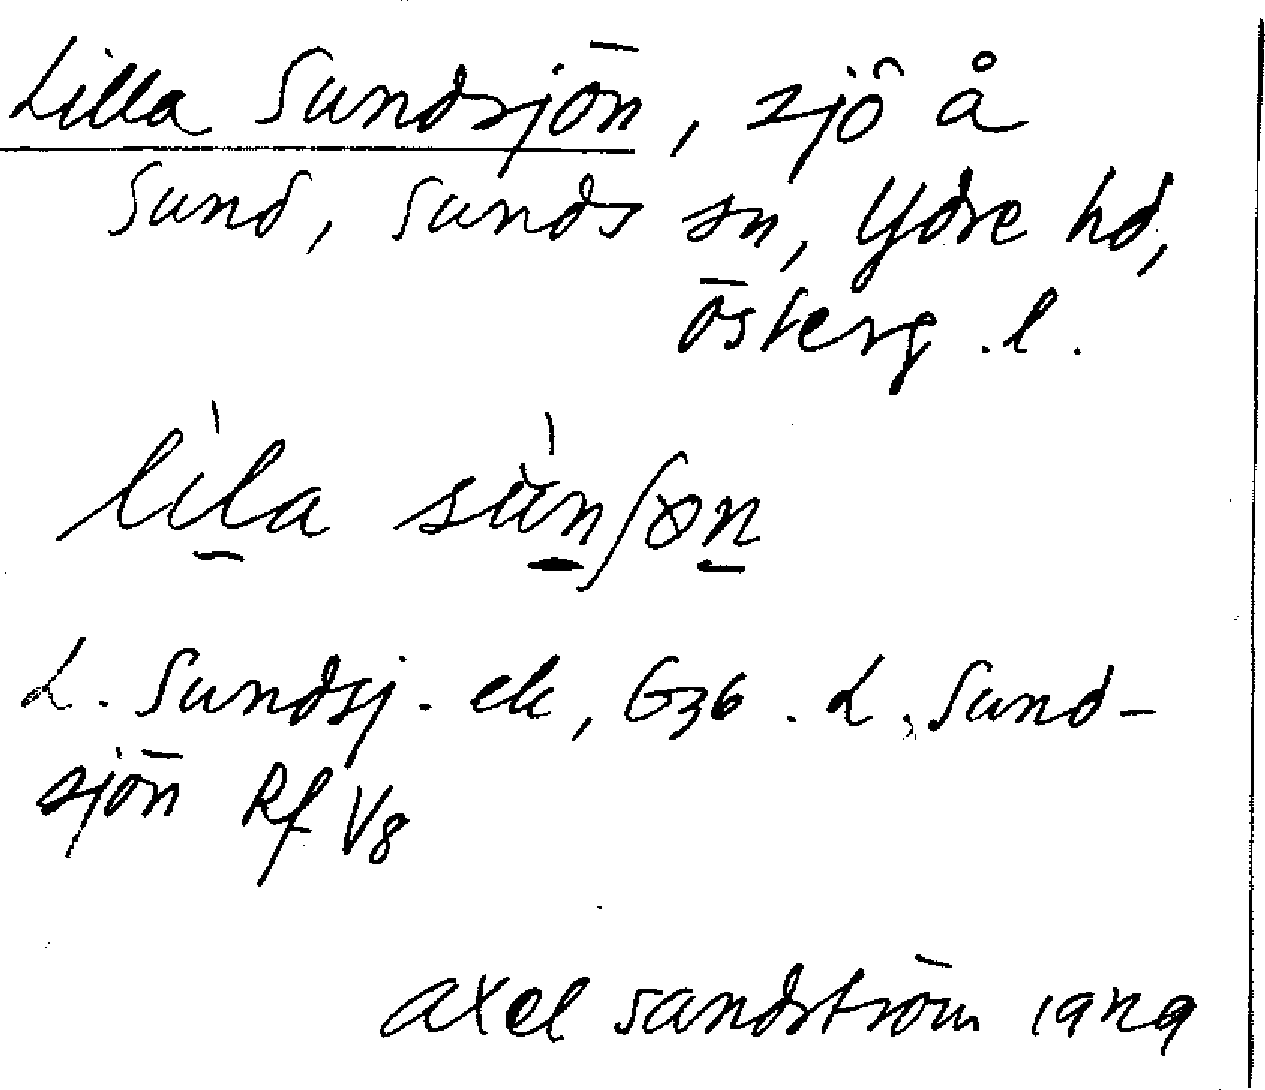 Lilla Sundsjön, sjö å
Sund, Sunds sn, Ydre hd,
Österg. l.
lila sunʃøn
L. Sundsj. ek, G36. L. Sund-
sjön Rf V8
Axel Sandström 1929